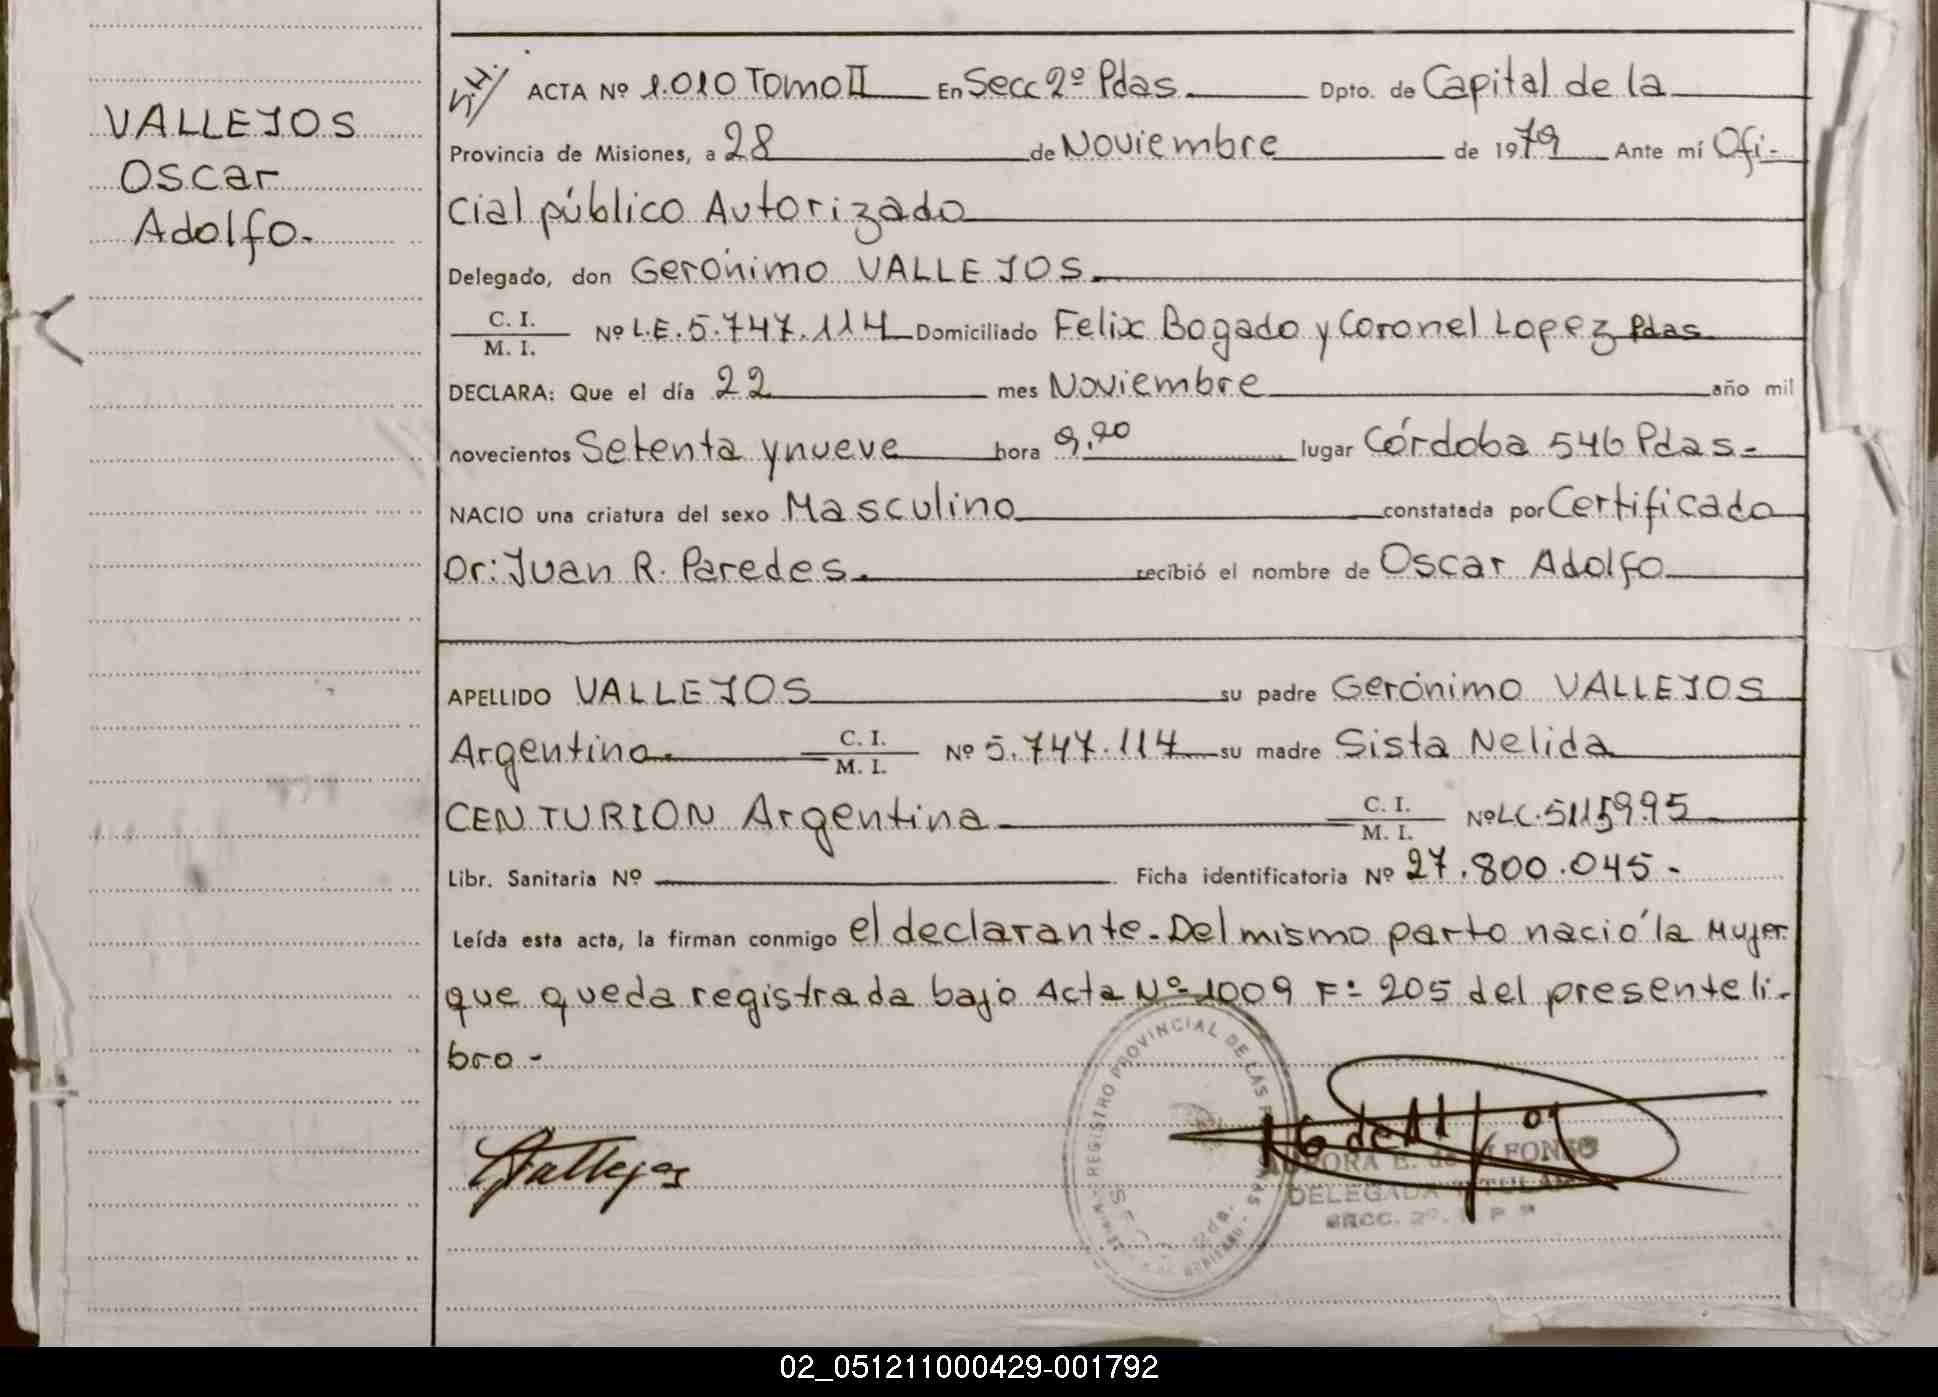 VALLEJOS
Oscar
Adolfo.
S.H./ ACTA Nº 1.010 Tomo II En Secc 2º Pdas. Dpto. de Capital de la
Provincia de Misiones, a 28 de Noviembre de 1979 Ante mí Ofi-
cial público Autorizado
Delegado, don Gerónimo VALLEJOS.
C. I.
M. I. Nº L.E. 5.747.114 Domiciliado Felix Bogado y Coronel Lopez Pdas
DECLARA: Que el día 22 mes Noviembre año mil
novecientos Setenta y nueve hora 9,20 lugar Córdoba 546 Pdas.-
NACIO una criatura del sexo Masculino constatada por Certificado
Dr: Juan R. Paredes. recibió el nombre de Oscar Adolfo
APELLIDO VALLEJOS su padre Gerónimo VALLEJOS
Argentino. C. I.
M. I. Nº 5.747.114 su madre Sista Nelida
CENTURION Argentina C. I.
M. I. Nº LC. 5115995
Libr. Sanitaria Nº Ficha identificatoria Nº 27.800.045-
Leída esta acta, la firman conmigo el declarante. Del mismo parto nació la Mujer
que queda registrada bajo Acta Nº 1009 Fº 205 del presente li-
bro-
REGISTRO PROVINCIAL DE LAS PERSONAS
GVallejos
AURORA E. de ALFONSO
DELEGADA TITULAR
SECC. 2º.
02_051211000429-001792